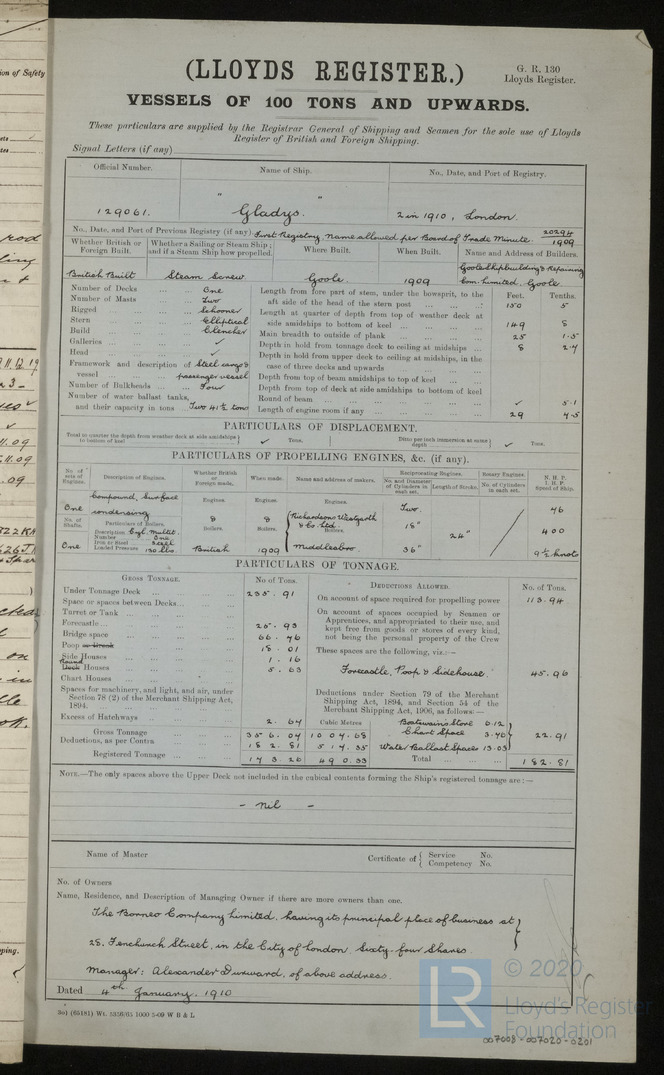 (LLOYDS REGISTER.)
G. R. 130
Lloyds Register.
VESSELS OF 100 TONS AND UPWARDS.
These particulars are supplied by the Registrar General of Shipping and Seamen for the sole use of Lloyds
Register of British and Foreign Shipping.
Signal Letters (if any)
Official Number. Name of Ship. No., Date, and Port of Registry.
129061. "Gladys." 2 in 1910, London.
No., Date, and Port of Previous Registry (if any) First Registry, Name allowed per Board of Trade Minute. 20294 1909
Whether British or Foreign Built. Whether a Sailing or Steam Ship; and if a Steam Ship how propelled. Where Built. When Built. Name and Address of Builders.
British Built Steam Screw. Goole 1909 Goole Shipbuilding & Repairing Com. Limited. Goole
Number of Decks One
Number of Masts Two
Rigged Schooner
Stern Elliptical
Build Clencher
Galleries ✓
Head ✓
Framework and description of vessel Steel cargo & passenger vessel
Number of Bulkheads Four
Number of water ballast tanks, and their capacity in tons Two 41½ tons
Feet. Tenths.
Length from fore part of stem, under the bowsprit, to the aft side of the head of the stern post 150 5
Length at quarter of depth from top of weather deck at side amidships to bottom of keel 149 8
Main breadth to outside of plank 25 1·5
Depth in hold from tonnage deck to ceiling at midships 8 2·7
Depth in hold from upper deck to ceiling at midships, in the case of three decks and upwards
Depth from top of beam amidships to top of keel
Depth from top of deck at side amidships to bottom of keel
Round of beam ✓ 5·1
Length of engine room if any 29 7·5
PARTICULARS OF DISPLACEMENT.
Total to quarter the depth from weather deck at side amidships to bottom of keel ✓ Tons. Ditto per inch immersion at same depth ✓ Tons.
PARTICULARS OF PROPELLING ENGINES, &c. (if any).
No. of sets of Engines. Description of Engines. Whether British or Foreign made. When made. Name and address of makers. Reciprocating Engines. Rotary Engines. N. H. P. I. H. P. Speed of Ship.
No. and Diameter of Cylinders in each set. Length of Stroke. No. of Cylinders in each set.
One Compound, Surface condensing Engines. Engines. Engines. Two. 46
No. of Shafts. Particulars of Boilers. Boilers. Boilers. Richardsons Westgarth & Co. Ltd. Boilers. 18" 24" 400
Description Cyl. Multit.
Number One
Iron or Steel Steel
One Loaded Pressure 130 lbs. British 1909 Middlesbro. 36" 9½ knots
PARTICULARS OF TONNAGE.
GROSS TONNAGE. No. of Tons.
Under Tonnage Deck 235.91
Space or spaces between Decks
Turret or Tank
Forecastle 25.93
Bridge space 66.76
Poop or Break 18.01
Side Houses 1.16
Round Deck Houses 5.63
Chart Houses
Spaces for machinery, and light, and air, under Section 78 (2) of the Merchant Shipping Act, 1894.
Excess of Hatchways 2.64
Cubic Metres
Gross Tonnage 356.04 1004.68
Deductions, as per Contra 182.81 514.35
Registered Tonnage 173.26 490.33
DEDUCTIONS ALLOWED. No. of Tons.
On account of space required for propelling power 113.94
On account of spaces occupied by Seamen or Apprentices, and appropriated to their use, and kept free from goods or stores of every kind, not being the personal property of the Crew
These spaces are the following, viz.:—
Forecastle, Poop & Sidehouse. 45.96
Deductions under Section 79 of the Merchant Shipping Act, 1894, and Section 54 of the Merchant Shipping Act, 1906, as follows:—
Boatswain's Store 6.12
Chart Space 3.76
Water Ballast Spaces 13.03
22.91
Total 182.81
NOTE.—The only spaces above the Upper Deck not included in the cubical contents forming the Ship's registered tonnage are:—
- nil -
Name of Master Certificate of { Service No. Competency No.
No. of Owners
Name, Residence, and Description of Managing Owner if there are more owners than one.
The Borneo Company Limited, having its principal place of business at
28, Fenchurch Street, in the City of London Sixty four Shares.
Manager: Alexander Durward, of above address.
Dated 4th January, 1910
LR
© 2020
Lloyd's Register
Foundation
007008-007020-0201